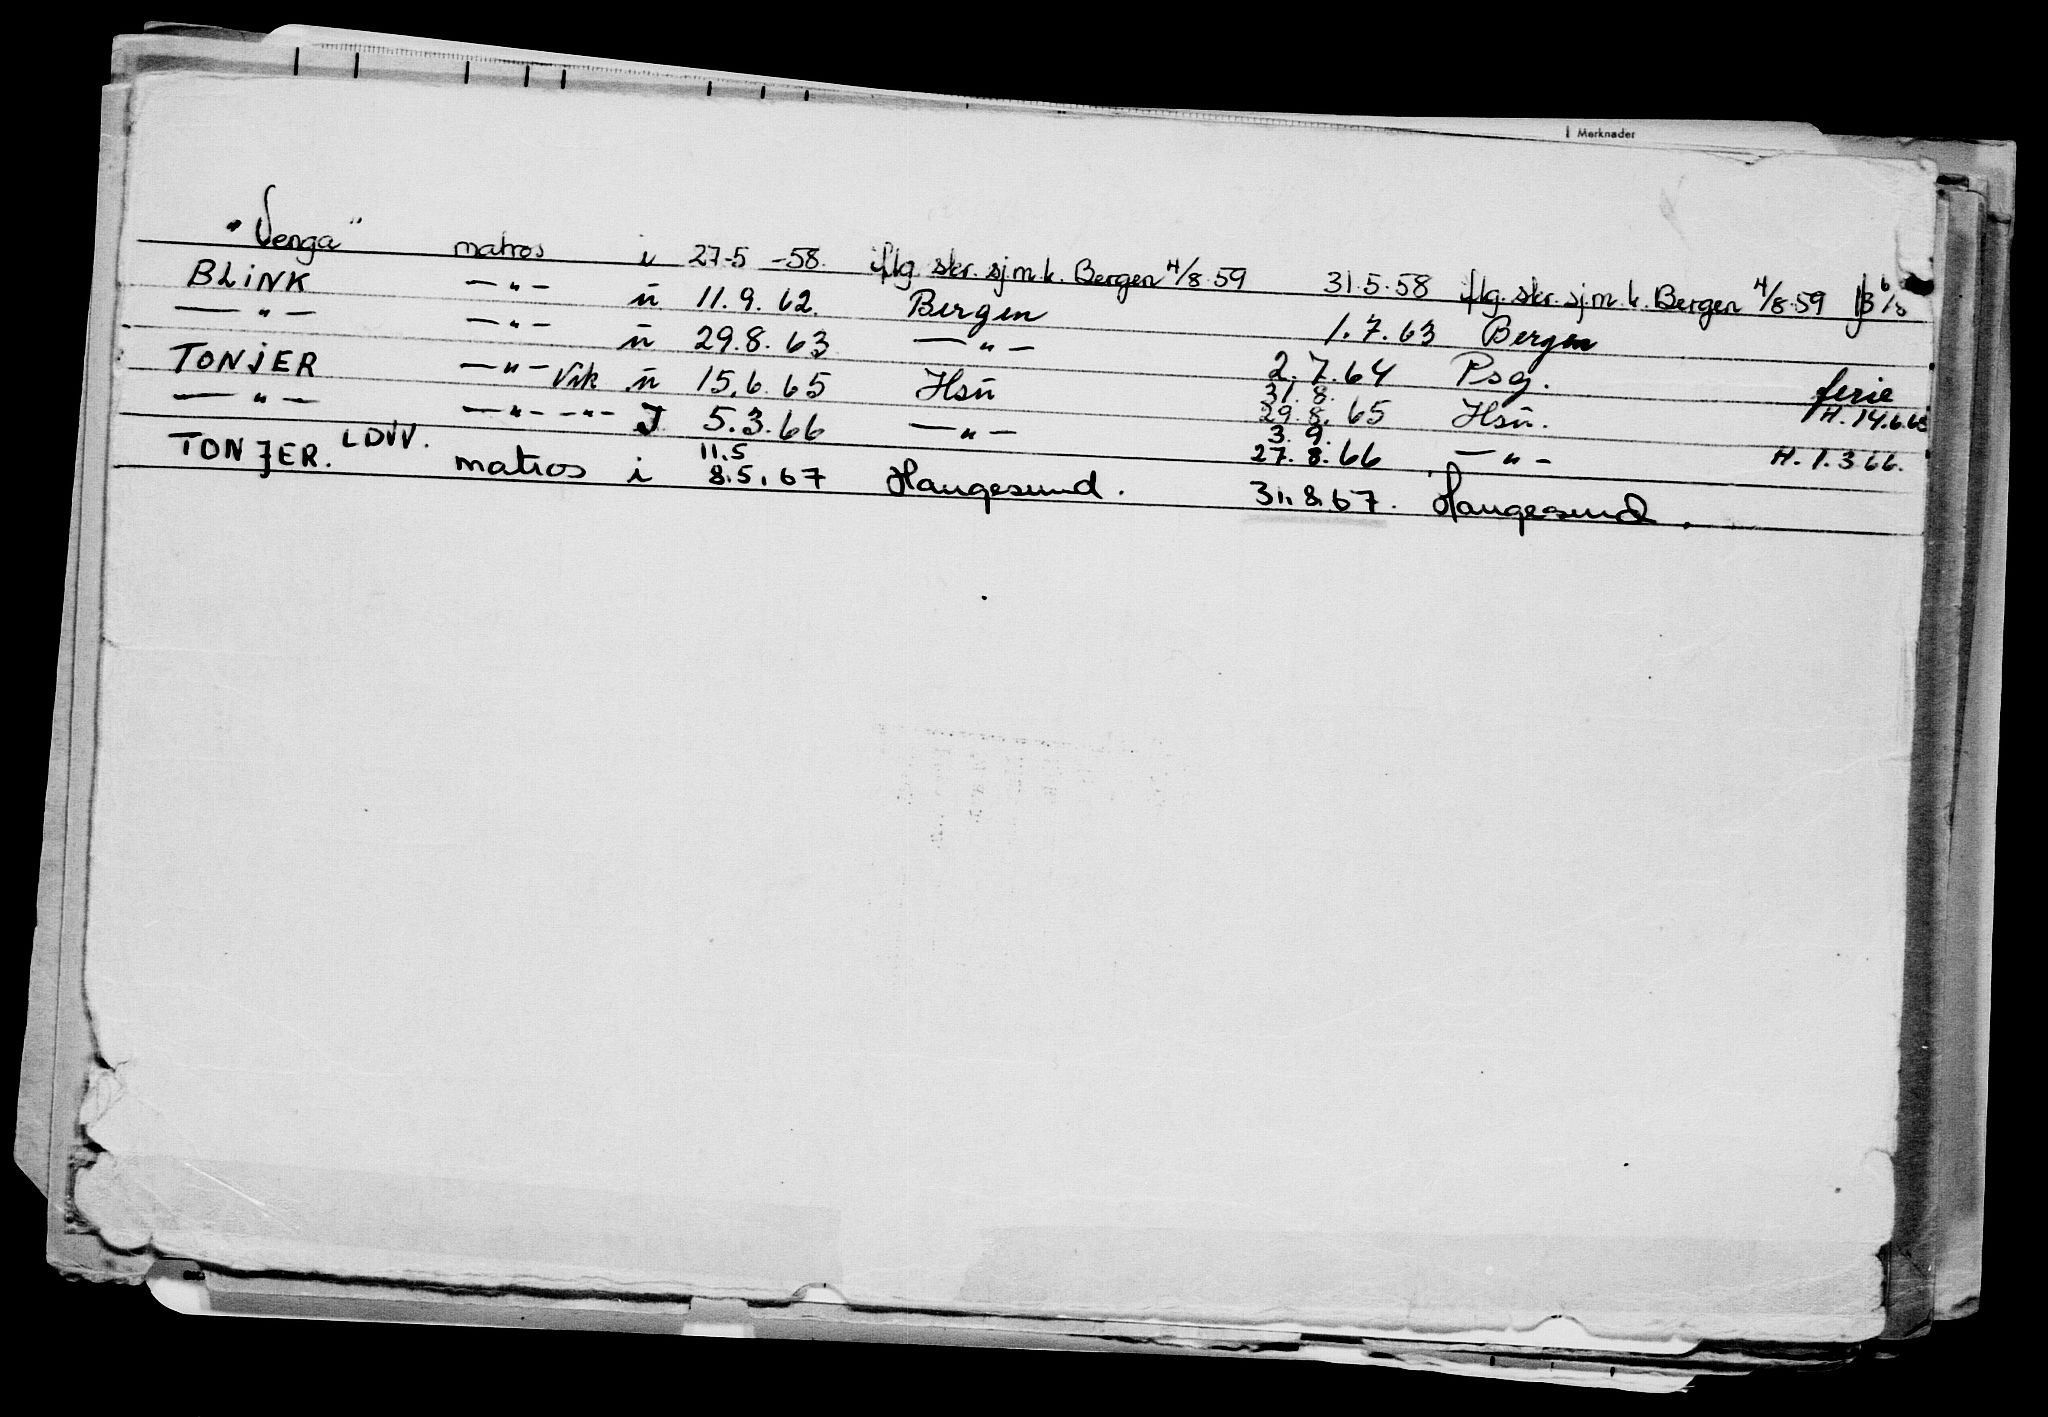 Merknader
"Venga" matros i 27-5-58. iflg. skr. sj.m.k. Bergen 4/8.59 31.5.58 iflg. skr. sj.m.k. Bergen 4/8-59
BLINK —"— ü 11.9.62. Bergen 1.7.63 Bergen
—"— —"— ü 29.8.63 —"— 2.7.64 Psg. ferie
TONJER —"— Vik ü 15.6.65 Hsü 31.8. 29.8.65 Hsü. H. 14.6.65
—"— —"— —"— J 5.3.66 —"— 3.9. 27.8.66 —"— H. 1.3.66.
TONJER. LDVV. matros i 11.5 8.5.67 Haugesund. 31.8.67. Haugesund.